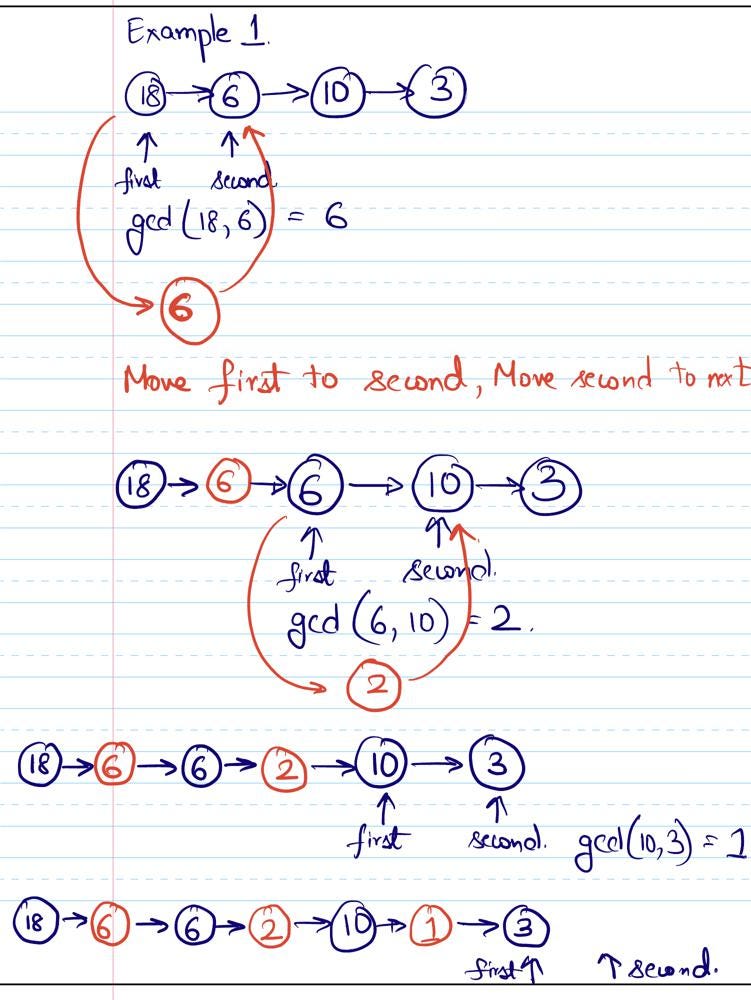 Example 1.
18 → 6 → 10 → 3
↑ ↑
first second
gcd (18, 6) = 6
6
Move first to second, Move second to next
18 → 6 → 6 → 10 → 3
↑ ↑
first second.
gcd (6, 10) = 2.
2
18 → 6 → 6 → 2 → 10 → 3
↑ ↑
first second. gcd(10,3) = 1
18 → 6 → 6 → 2 → 10 → 1 → 3
first ↑ ↑ second.